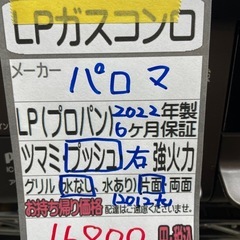 LPガスコンロ
メーカー パロマ
LP(プロパン) 2022年製
6ヶ月保証
ツマミ プッシュ 右 強火力
グリル 水なし、水あり 片面 両面
お持ち帰り価格
16800